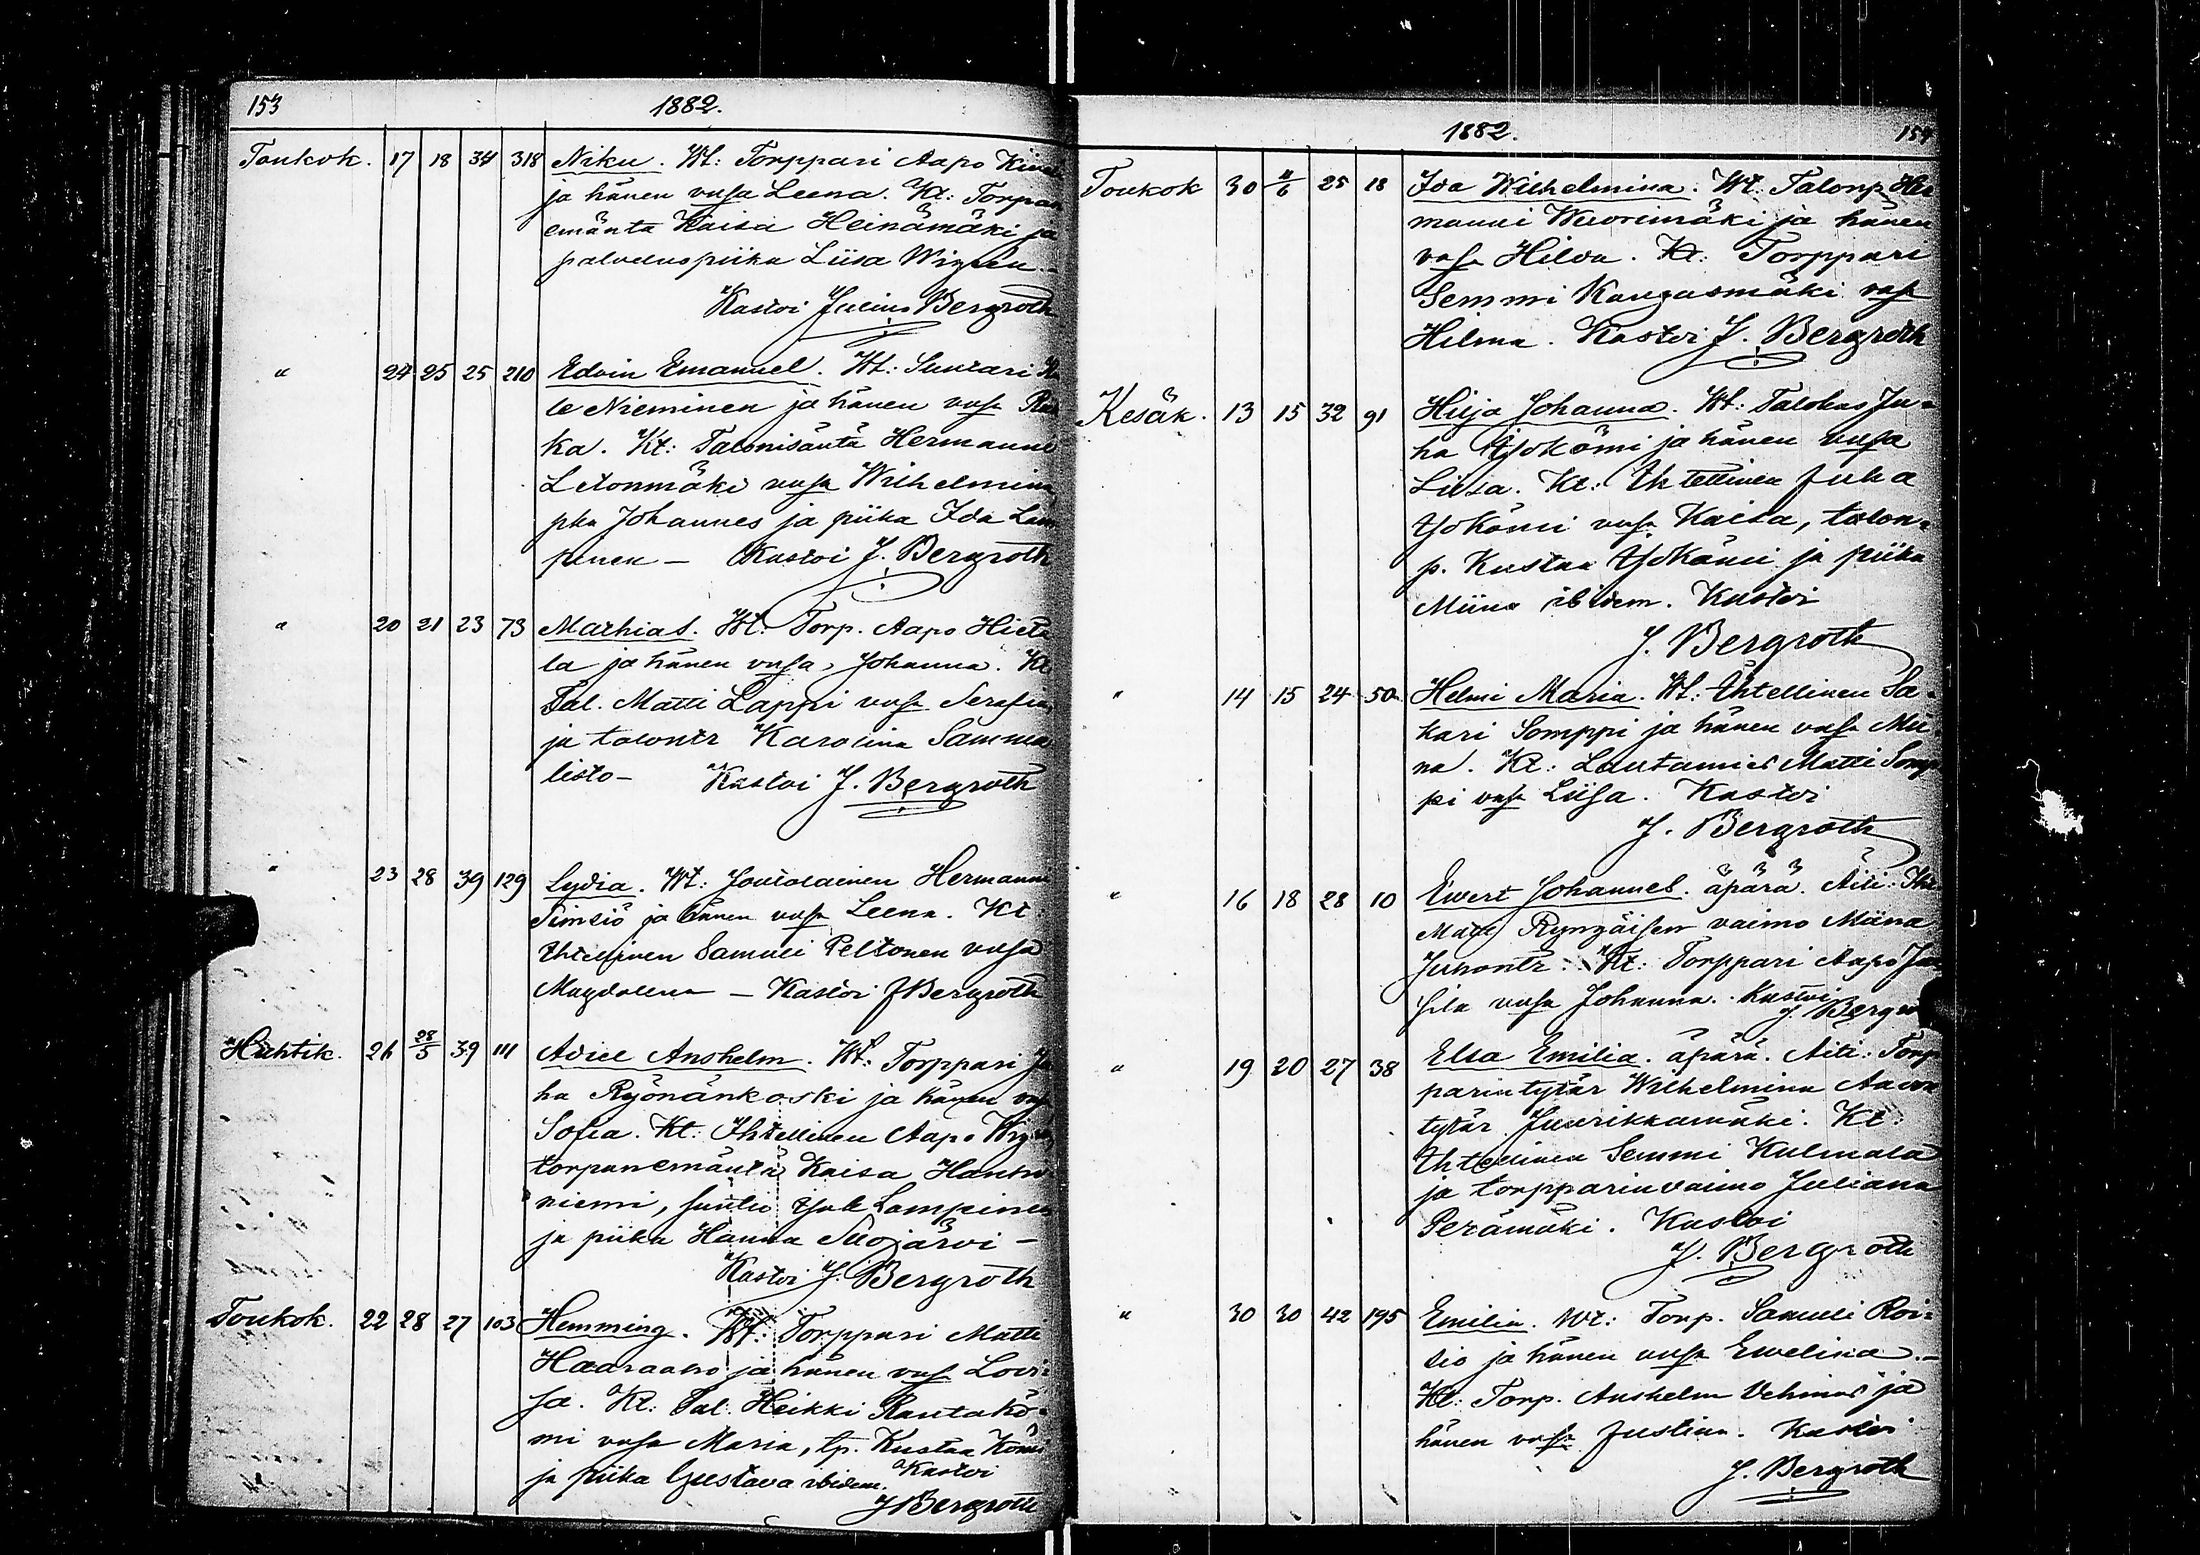 153 1882.
Toukok. 17 18 34 318 Niku. Wt: Torppari Aapo
ja hänen vmsa Leena. Kt: Torpan
emäntä Kaisa Heinämäki ja
palveluspiika Liisa
Kastoi Julius Bergroth
" 24 25 25 210 Edvin Emanuel. Wt: Suutari
le Nieminen ja hänen vmsa
ka. Kt: Talonisäntä Hermanni
Letonmäki vmsa Wilhelmina
pka Johannes ja piika Ida Lam
pinen – Kastoi J. Bergroth
" 20 21 23 73 Mathias. Wt: Torp. Aapo Hieta
la ja hänen vmsa Johanna. Kt
Tal. Matti Lappi vmsa Serafia
ja talontr Karolina Samma
listo – Kastoi J. Bergroth
" 23 28 39 129 Lydia. Wt: Hermanni
Simsiö ja hänen vmsa Leena. Kt:
Ihtellinen Samuli Peltonen vmsa
Magdalena – Kastoi J Bergroth
Huhtik. 26 28/5 39 111 Anshelm. Wt: Torppari Ju
ha Ryönänkoski ja hänen vmsa
Sofia. Kt: Ihtellinen Aapo
torpanemäntä Kaisa
niemi, suutri Lampinen
ja piika Hanna Suojärvi –
Kastoi J. Bergroth
Toukok. 22 28 27 103 Hemming. Wt: Torppari Matti
Haaraaho ja hänen vmsa Lovi-
sa. Kt: Tal. Heikki Rantakö-
mi vmsa Maria, tp. Kustaa Kömi
ja piika Gustava ibidem. Kastoi
J Bergroth
1882. 154
Toukok 30 11/6 25 18 Ida Wilhelmina. Wt: Talonp. Her
manni Wuorimäki ja hänen
vmsa Hilda. Kt: Torppari
Semmi Kangasmäki vmsa
Hilma. Kastoi J. Bergroth
Kesäk. 13 15 32 91 Hilja Johanna. Wt: Talokas Ju-
ha Ylikömi ja hänen vmsa
Liisa. Kt: Ihtellinen Juha
Ylikömi vmsa Kaisa, talon-
p. Kustaa Ylikömi ja piika
Miina ibidem. Kastoi
J. Bergroth
" 14 15 24 50 Helmi Maria. Wt: Ihtellinen Sa-
kari Somppi ja hänen vmsa Mii
na. Kt: Lautamies Matti Somp
pi vmsa Liisa. Kastoi
J. Bergroth
" 16 18 28 10 Ewert Johannes. äpärä. Äiti: Iht
Matti Ryngäisen vaimo Miina
Juhontr. Kt: Torppari Aapo
sila vmsa Johanna. Kastoi
J. Bergroth
" 19 20 27 38 Elsa Emilia. äpärä. Äiti: Torp
parintytär Wilhelmina Aavon
tytär Juurikkamäki. Kt:
Ihtellinen Semmi Kulmala
ja torpparinvaimo Juliana
Perämäki. Kastoi
J. Bergroth
" 30 30 42 195 Emilia. Wt: Torp. Samuli Roi-
sio ja hänen vmsa Ewelina. –
Kt: Torp. Anshelm Vehmas ja
hänen vmsa Justina. Kastoi
J. Bergroth